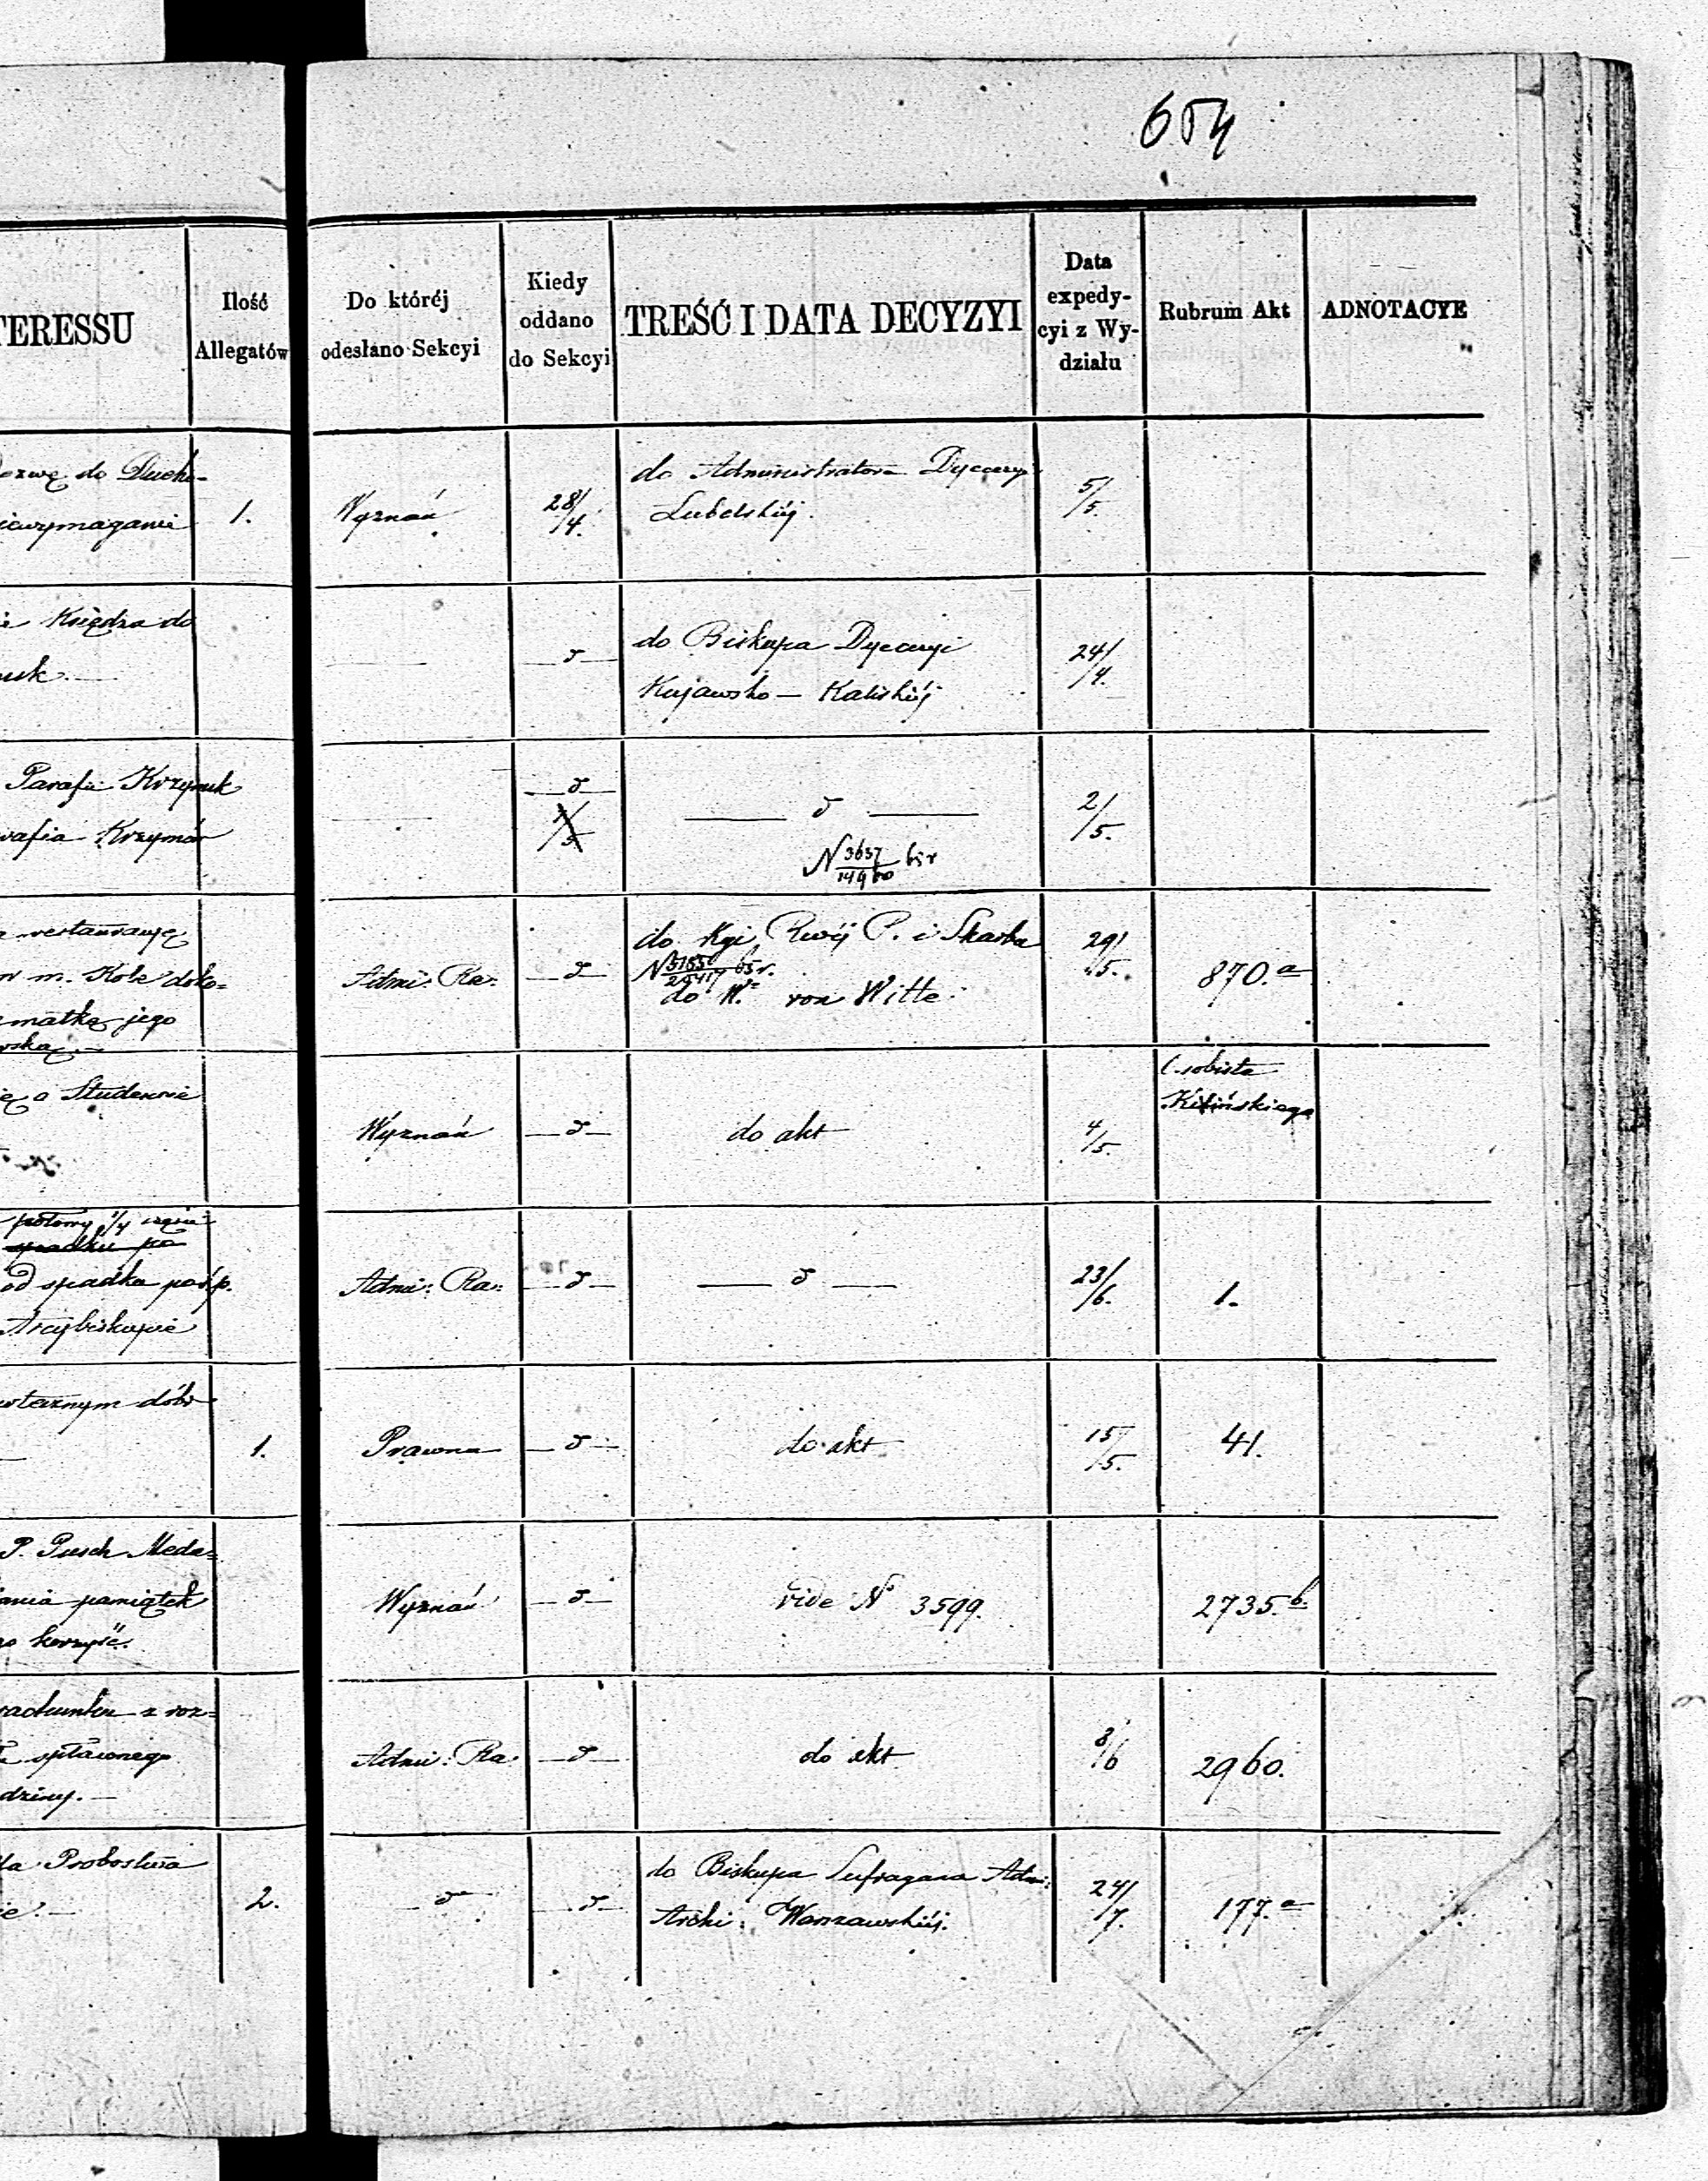 654
TERESSU
Ilość
Allegatów
Do któréj
odesłano Sekcyi
Kiedy
oddano
do Sekcyi
TREŚĆ I DATA DECYZYI
Data
expedy-
cyi z Wy-
działu
Rubrum Akt
ADNOTACYE
do Ducho-
1.
Wyznań
28/4.
do Administratora Dyecezyi
Lubelskiéj.
5/5.
Księdza do
— d —
do Biskupa Dyecezyi
Kujawsko — Kaliskiéj
24/4.
Parafii Krzymuk
Krzymów
— d —
— d —
N 3637/14960 bir
2/5.
restauracyę
w m. Kole doko=
matkę jego
Admi: Ra:
— d —
do Kgi Rwéj P. i Skarbu
do W. von Witte
29/5.
870.a
o Studencie
Wyznań
— d —
do akt
4/5.
Osobiste
Kilińskiego
połowy 1/4 części
spadku po
od spadku po ś.p.
Arcybiskupie
Admi: Ra:
— d —
— d —
23/6.
1.
dóbr
1.
Prawna
— d —
do akt
15/5.
41.
P. Pusch Meda=
pamiątek
korzyść.
Wyznań
— d —
vide No 3599.
2735.b.
rachunku z roz=
spławnego
Admi: Ra:
— d —
do akt
8/6
2960.
Probostwa
2.
— d —
— d —
do Biskupa Sufragana Admi:
Archi: Warszawskiéj.
24/7.
177.a